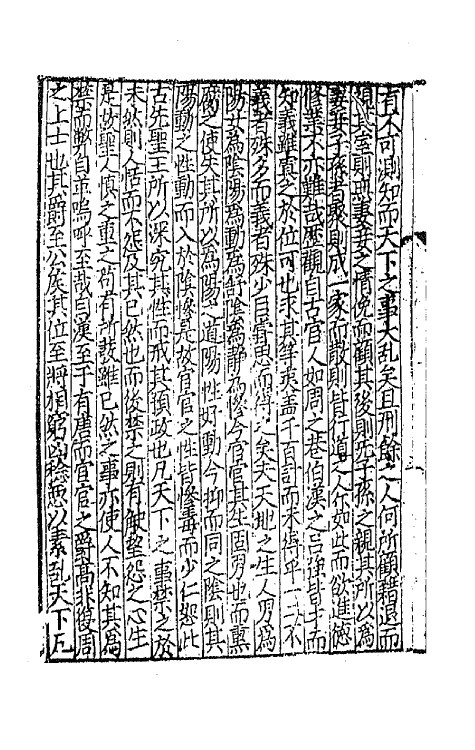 有不可測知而天下之事大亂矣且刑餘之人何所顧藉退而
顧其室則無妻妾之情俛而顧其後則無子孫之親其所以爲
妻與子孫者聚則成一家而散則皆行道之人尓如此而欲進德
修業不亦難哉歷觀自古官人如周之巷伯漢之吕強其才而
知義雖寘之於位可也求其
義者殊多而義者殊少目嘗思而得之矣夫天地之生人男爲
陽女爲陰陽爲動爲舒陰爲靜爲慘今宦官其生固男也而熏
腐之使失其所以爲陽之道陽性好動今抑而同之陰則其
陽動之性動而入於陰慘是故宦官之性皆慘毒而少仁恕此
古先聖王所以深究其性而戒其預政也凡天下之事禁之於
未然則人恬而不怨及其已然也而後禁之則有觖望怨之心生
是故聖人慎之重之苟有所設雖已然之事亦使人不知其爲
禁而弊自革嗚呼至哉自漢至于有唐而宦官之爵高非復周
之上士也其爵至公族其位至將相窮凶稔惡以紊亂天下凡